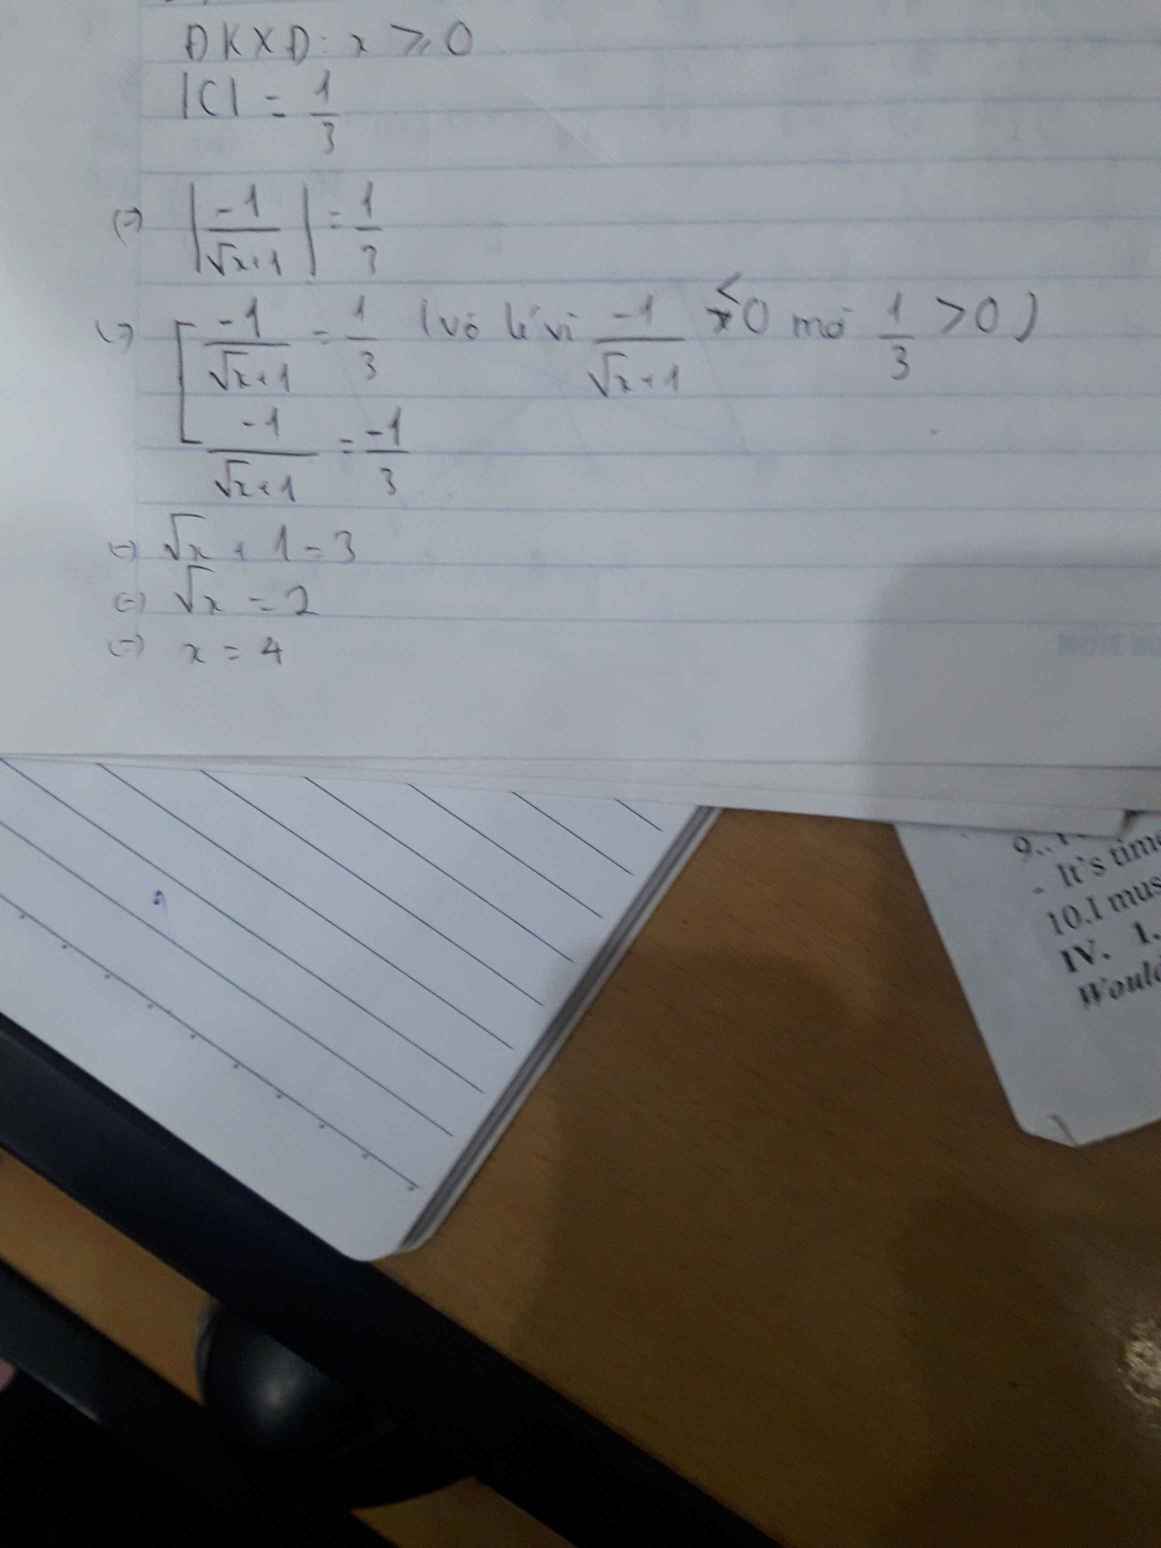 ĐKXĐ: x ≥ 0
|C| = 1/3
(=) |-1/(√x+1)| = 1/3
(=) [ -1/(√x+1) = 1/3 (vô lí vì -1/(√x+1) < 0 mà 1/3 > 0)
-1/(√x+1) = -1/3
(=) √x + 1 = 3
(=) √x = 2
(=) x = 4
9..
- It's time
10.I mus
IV. 1.
Would